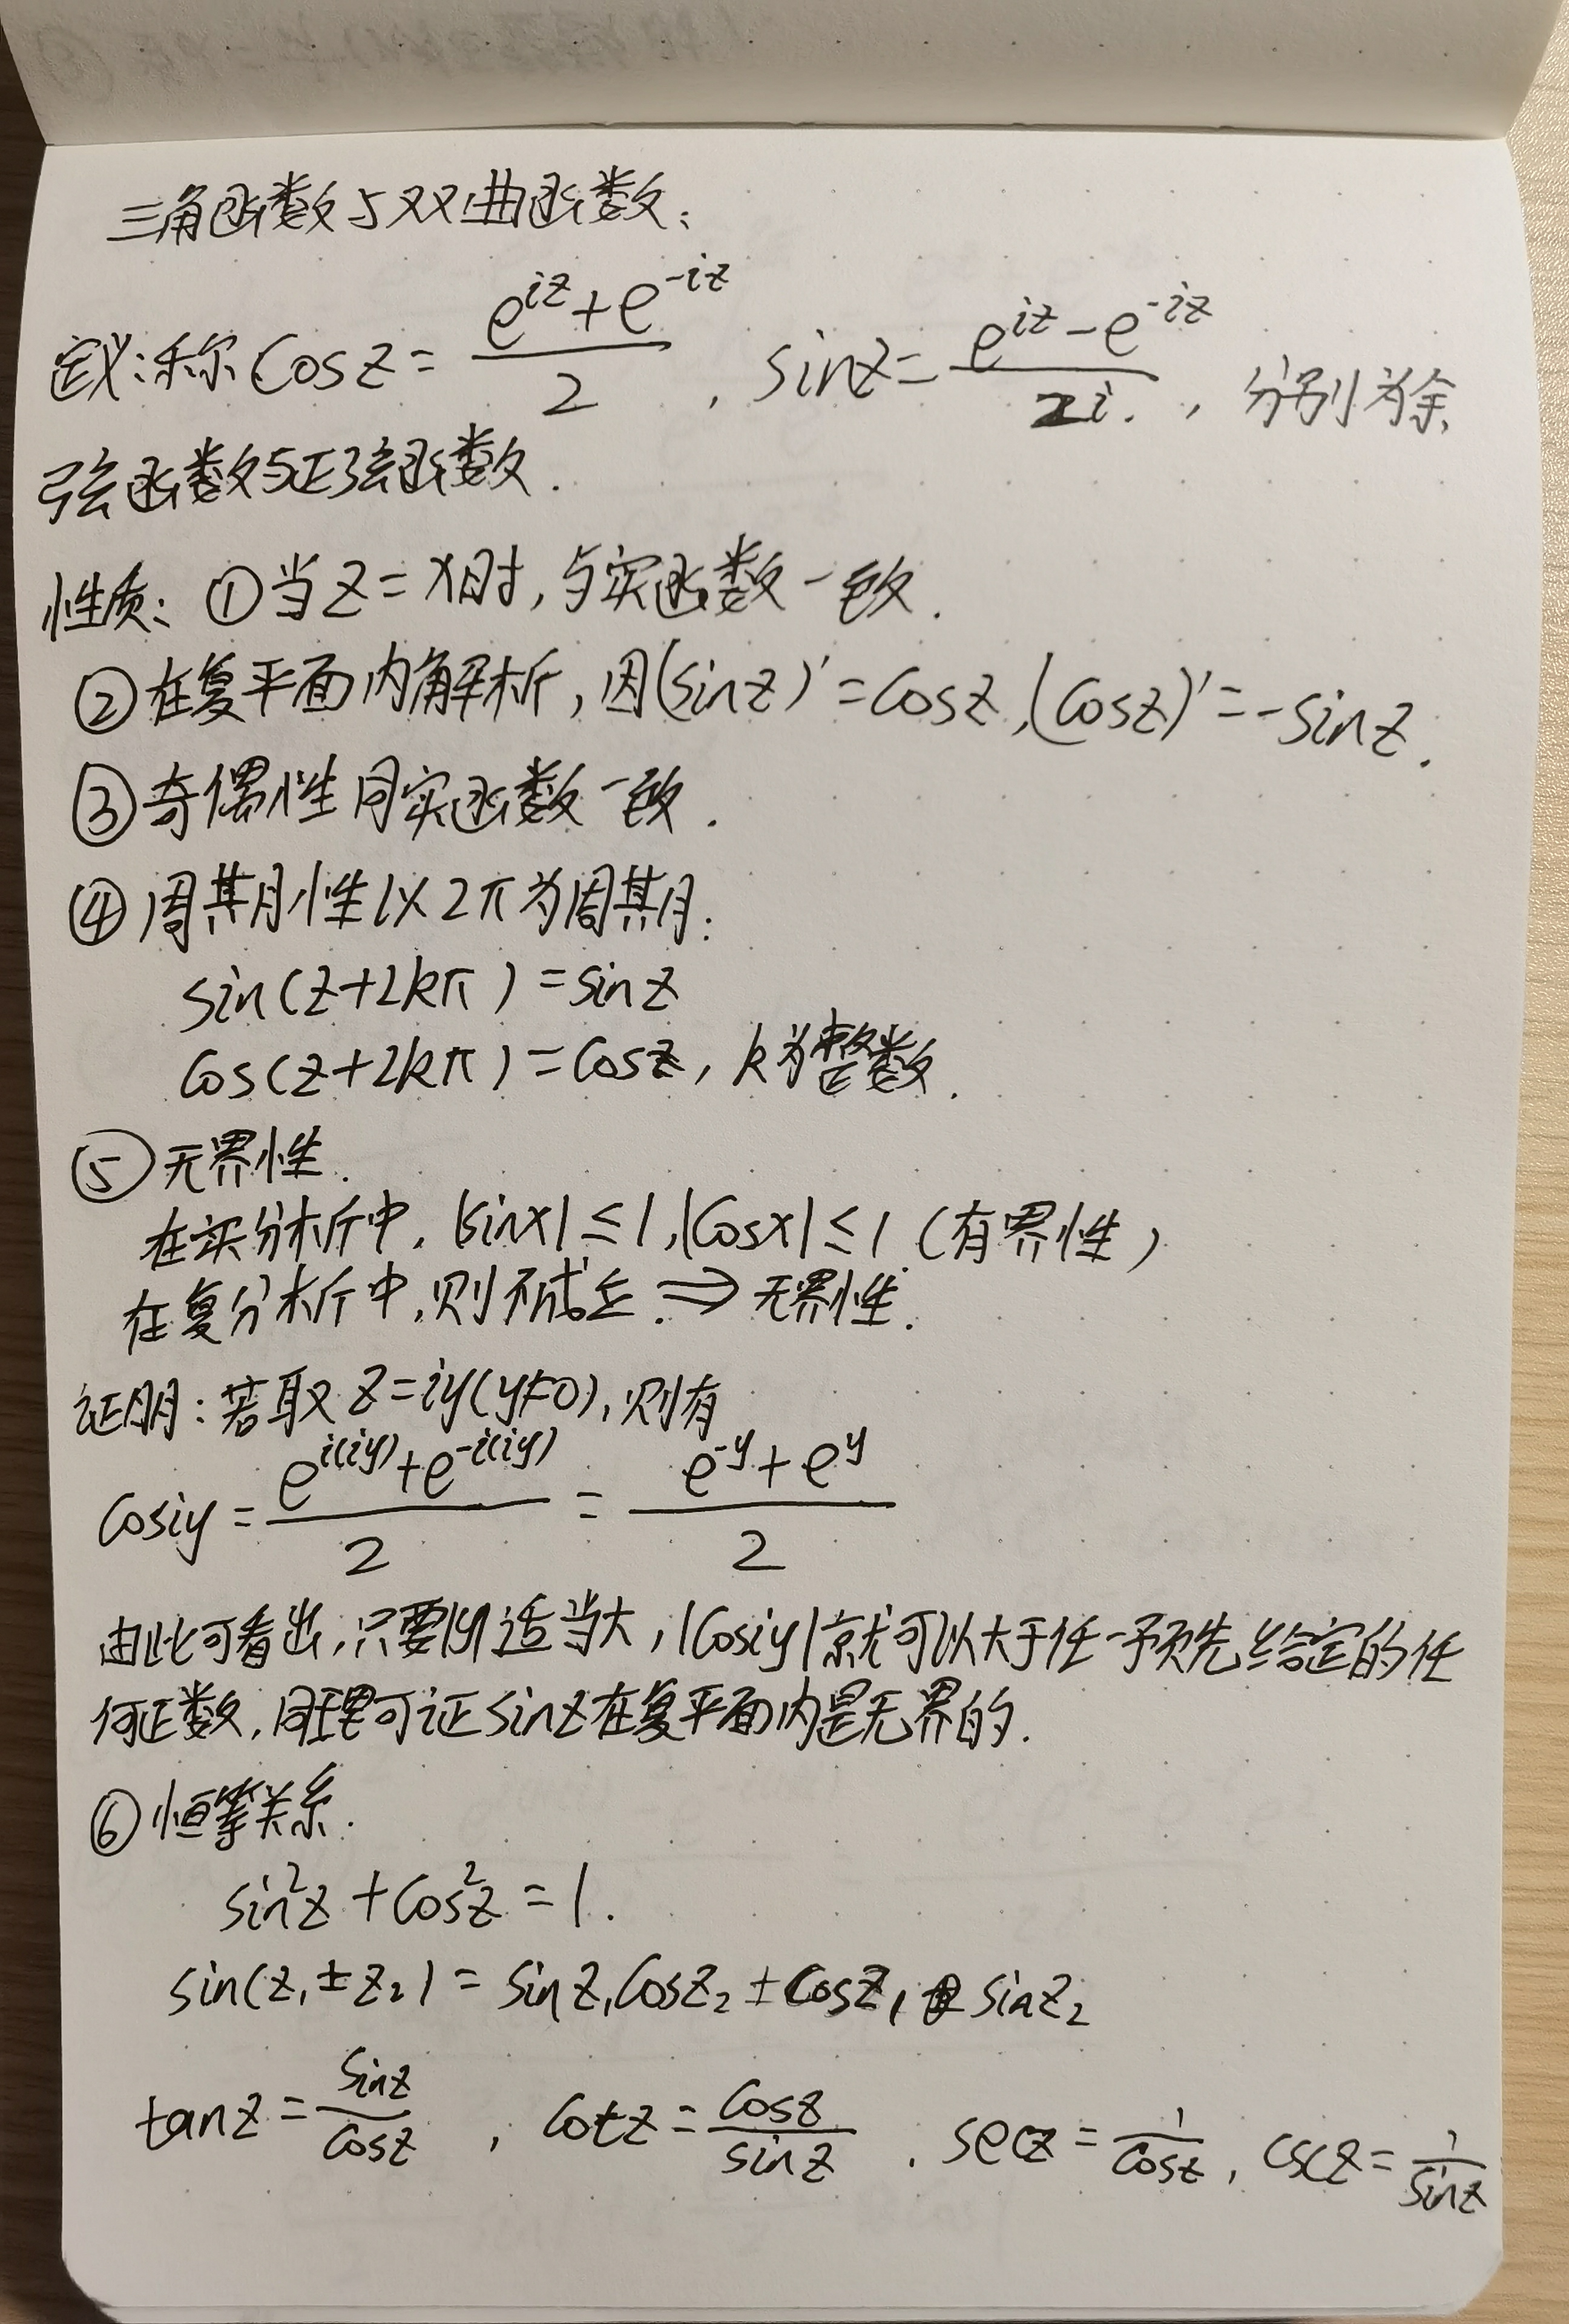 三角函数与双曲函数：
定义：称 cos z = (e^{iz} + e^{-iz})/2 , sin z = (e^{iz} - e^{-iz})/2i. , 分别为余
弦函数与正弦函数.
性质：①当 z = x时, 与实函数一致.
②在复平面内解析, 因(sin z)' = cos z, (cos z)' = -sin z.
③奇偶性同实函数一致.
④周期性以2π为周期：
sin(z+2kπ) = sin z
cos(z+2kπ) = cos z, k为整数.
⑤无界性.
在实分析中, |sin x| ≤ 1, |cos x| ≤ 1 (有界性)
在复分析中, 则不成立. ⇒ 无界性.
证明：若取 z = iy(y≠0), 则有
cos iy = (e^{i(iy)} + e^{-i(iy)})/2 = (e^{-y} + e^{y})/2
由此可看出, 只要|y|适当大, |cos iy|就可以大于任一预先给定的任
何正数, 同理可证 sin z 在复平面内是无界的.
⑥恒等关系.
sin²z + cos²z = 1.
sin(z₁ ± z₂) = sin z₁ cos z₂ ± cos z₁ sin z₂
tan z = sin z/cos z , cot z = cos z/sin z , sec z = 1/cos z , csc z = 1/sin z